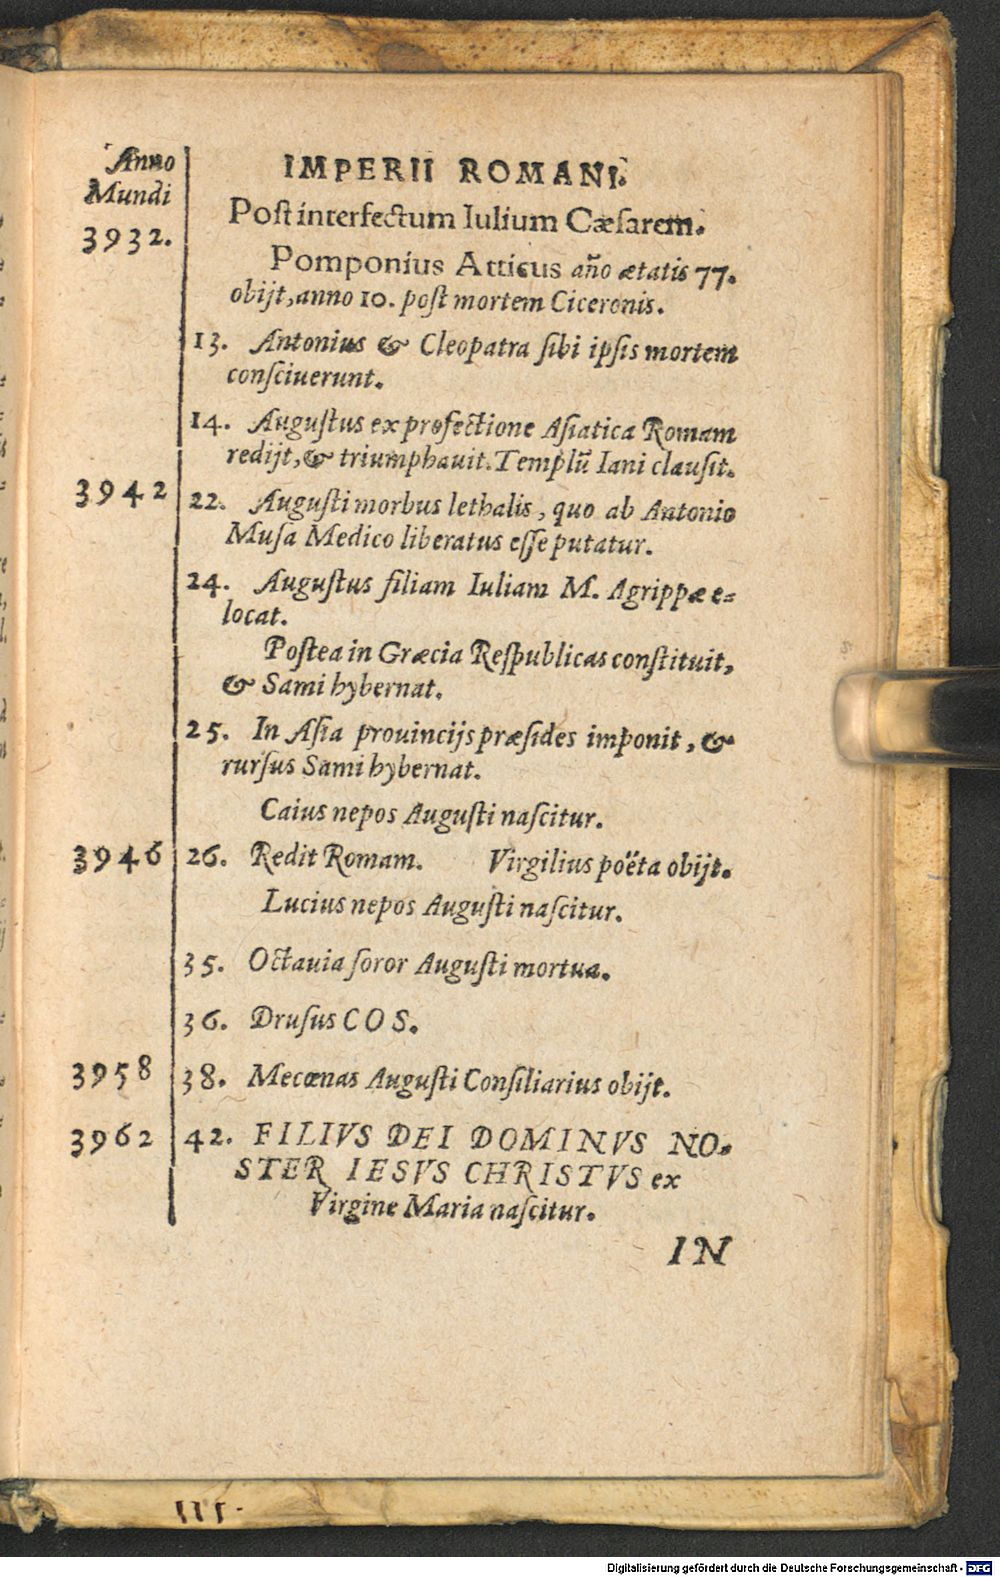 Anno
Mundi
3932.
IMPERII ROMANI.
Poſt interfectum Iulium Cæſarem.
Pomponius Atticus año ætatis 77.
obijt, anno 10. poſt mortem Ciceronis.
13. Antonius & Cleopatra ſibi ipſis mortem
conſciuerunt.
14. Auguſtus ex profectione Aſiatica Romam
redijt, & triumphauit. Templū Iani clauſit.
3942 22. Auguſti morbus lethalis, quo ab Antonio
Muſa Medico liberatus eſſe putatur.
24. Auguſtus filiam Iuliam M. Agrippæ e-
locat.
Poſtea in Græcia Reſpublicas conſtituit,
& Sami hybernat.
25. In Aſia prouincijs præſides imponit, &
rurſus Sami hybernat.
Caius nepos Auguſti naſcitur.
3946 26. Redit Romam. Virgilius poëta obijt.
Lucius nepos Auguſti naſcitur.
35. Octauia ſoror Auguſti mortua.
36. Druſus COS.
3958 38. Mecœnas Auguſti Conſiliarius obijt.
3962 42. FILIVS DEI DOMINVS NO-
STER IESVS CHRISTVS ex
Virgine Maria naſcitur.
IN
Digitalisierung gefördert durch die Deutsche Forschungsgemeinschaft - DFG